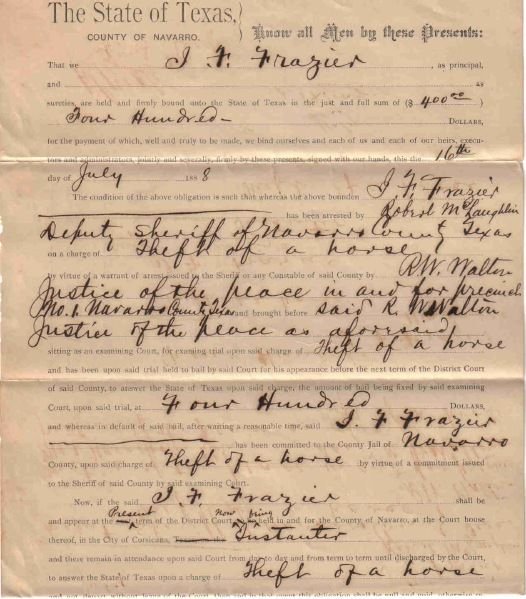 The State of Texas,
COUNTY OF NAVARRO.
Know all Men by these Presents:
That we J. F. Frazier, as principal,
and as
sureties, are held and firmly bound unto the State of Texas in the just and full sum of ($ 400.00 )
Four Hundred — DOLLARS,
for the payment of which, well and truly to be made, we bind ourselves and each of us and each of our heirs, execu-
tors and administrators, jointly and severally, firmly by these presents, signed with our hands, this the 16th
day of July 1888
The condition of the above obligation is such that whereas the above bounden J F Frazier
has been arrested by Robert McLaughlin
Deputy Sheriff of Navarro County Texas
on a charge of Theft of a horse
by virtue of a warrant of arrest issued to the Sheriff or any Constable of said County by R.W. Walton
Justice of the peace in and for precinct
No. 1 Navarro County Texas and brought before said R. W Walton
Justice of the peace as aforesaid
sitting as an examining Court, for examing trial upon said charge of Theft of a horse
and has been upon said trial held to bail by said Court for his appearance before the next term of the District Court
of said County, to answer the State of Texas upon said charge, the amount of bail being fixed by said examining
Court, upon said trial, at Four Hundred DOLLARS,
and whereas in default of said bail, after waiting a reasonable time, said J. F Frazier
has been committed to the County Jail of Navarro
County, upon said charge of Theft of a horse by virtue of a commitment issued
to the Sheriff of said County by said examining Court.
Now, if the said J. F. Frazier shall be
and appear at the Present term of the District Court Now being held in and for the County of Navarro, at the Court house
thereof, in the City of Corsicana, Instanter
and there remain in attendance upon said Court from day to day and from term to term until discharged by the Court,
to answer the State of Texas upon a charge of Theft of a horse